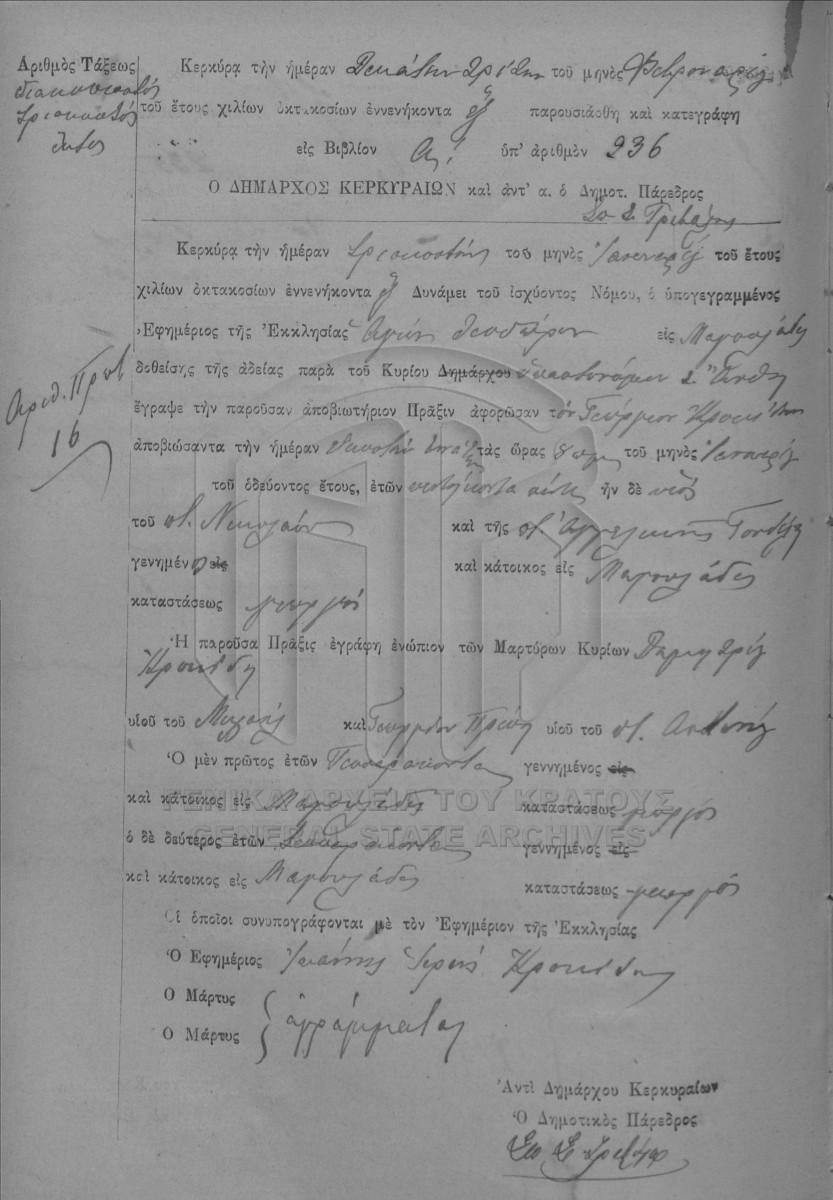 Ἀριθμὸς Τάξεως
διακοσιοστός
τριακοστός
ἕκτος
Κερκύρα τὴν ἡμέραν Δεκάτην Τρίτην τοῦ μηνὸς Φεβρουαρίου
τοῦ ἔτους χιλίων ὀκτακοσίων ἐννενήκοντα ἕξ παρουσιάσθη καὶ κατεγράφη
εἰς Βιβλίον Α! ὑπ' ἀριθμὸν 236
Ο ΔΗΜΑΡΧΟΣ ΚΕΡΚΥΡΑΙΩΝ καὶ ἀντ' α. ὁ Δημοτ. Πάρεδρος
Κερκύρα τὴν ἡμέραν τριακοστήν τοῦ μηνὸς Ἰανουαρίου τοῦ ἔτους
χιλίων ὀκτακοσίων ἐννενήκοντα ἕξ Δυνάμει τοῦ ἰσχύοντος Νόμου, ὁ ὑπογεγραμμένος
Ἐφημέριος τῆς Ἐκκλησίας Ἁγίων Θεοδώρων εἰς Μαρουλάδες
δοθείσης τῆς ἀδείας παρὰ τοῦ Κυρίου Δημάρχου
ἔγραψε τὴν παροῦσαν ἀποβιωτήριον Πρᾶξιν ἀφορῶσαν τὸν Γεώργιον Κροκίδην
ἀποβιώσαντα τὴν ἡμέραν τὰς ὥρας τοῦ μηνὸς Ἰανουαρίου
τοῦ ὁδεύοντος ἔτους, ἐτῶν πέντε ἦν δὲ υἱός
τοῦ π. Νικολάου καὶ τῆς π. Ἀγγελικῆς
γενημένο εἰς καὶ κάτοικος εἰς Μαρουλάδες
καταστάσεως γεωργός
Ἡ παροῦσα Πρᾶξις ἐγράφη ἐνώπιον τῶν Μαρτύρων Κυρίων Δημητρίου
Κροκίδη
υἱοῦ τοῦ Μιχαήλ καὶ υἱοῦ τοῦ π. Ἀντωνίου
Ὁ μὲν πρῶτος ἐτῶν Τεσσαράκοντα γεννημένος εἰς
καὶ κάτοικος εἰς Μαρουλάδες καταστάσεως γεωργός
ὁ δὲ δεύτερος ἐτῶν Τεσσαράκοντα γεννημένος εἰς
καὶ κάτοικος εἰς Μαρουλάδες καταστάσεως γεωργός
Οἱ ὁποῖοι συνυπογράφονται μὲ τὸν Ἐφημέριον τῆς Ἐκκλησίας
Ὁ Ἐφημέριος Ἰωάννης Ἱερεύς Κροκίδης
Ο Μάρτυς
Ο Μάρτυς ἀγράμματοι
Ἀντὶ Δημάρχου Κερκυραίων
Ὁ Δημοτικὸς Πάρεδρος
Ἀριθ. Πρωτ
16
ΓΕΝΙΚΑ ΑΡΧΕΙΑ ΤΟΥ ΚΡΑΤΟΥΣ
GENERAL STATE ARCHIVES